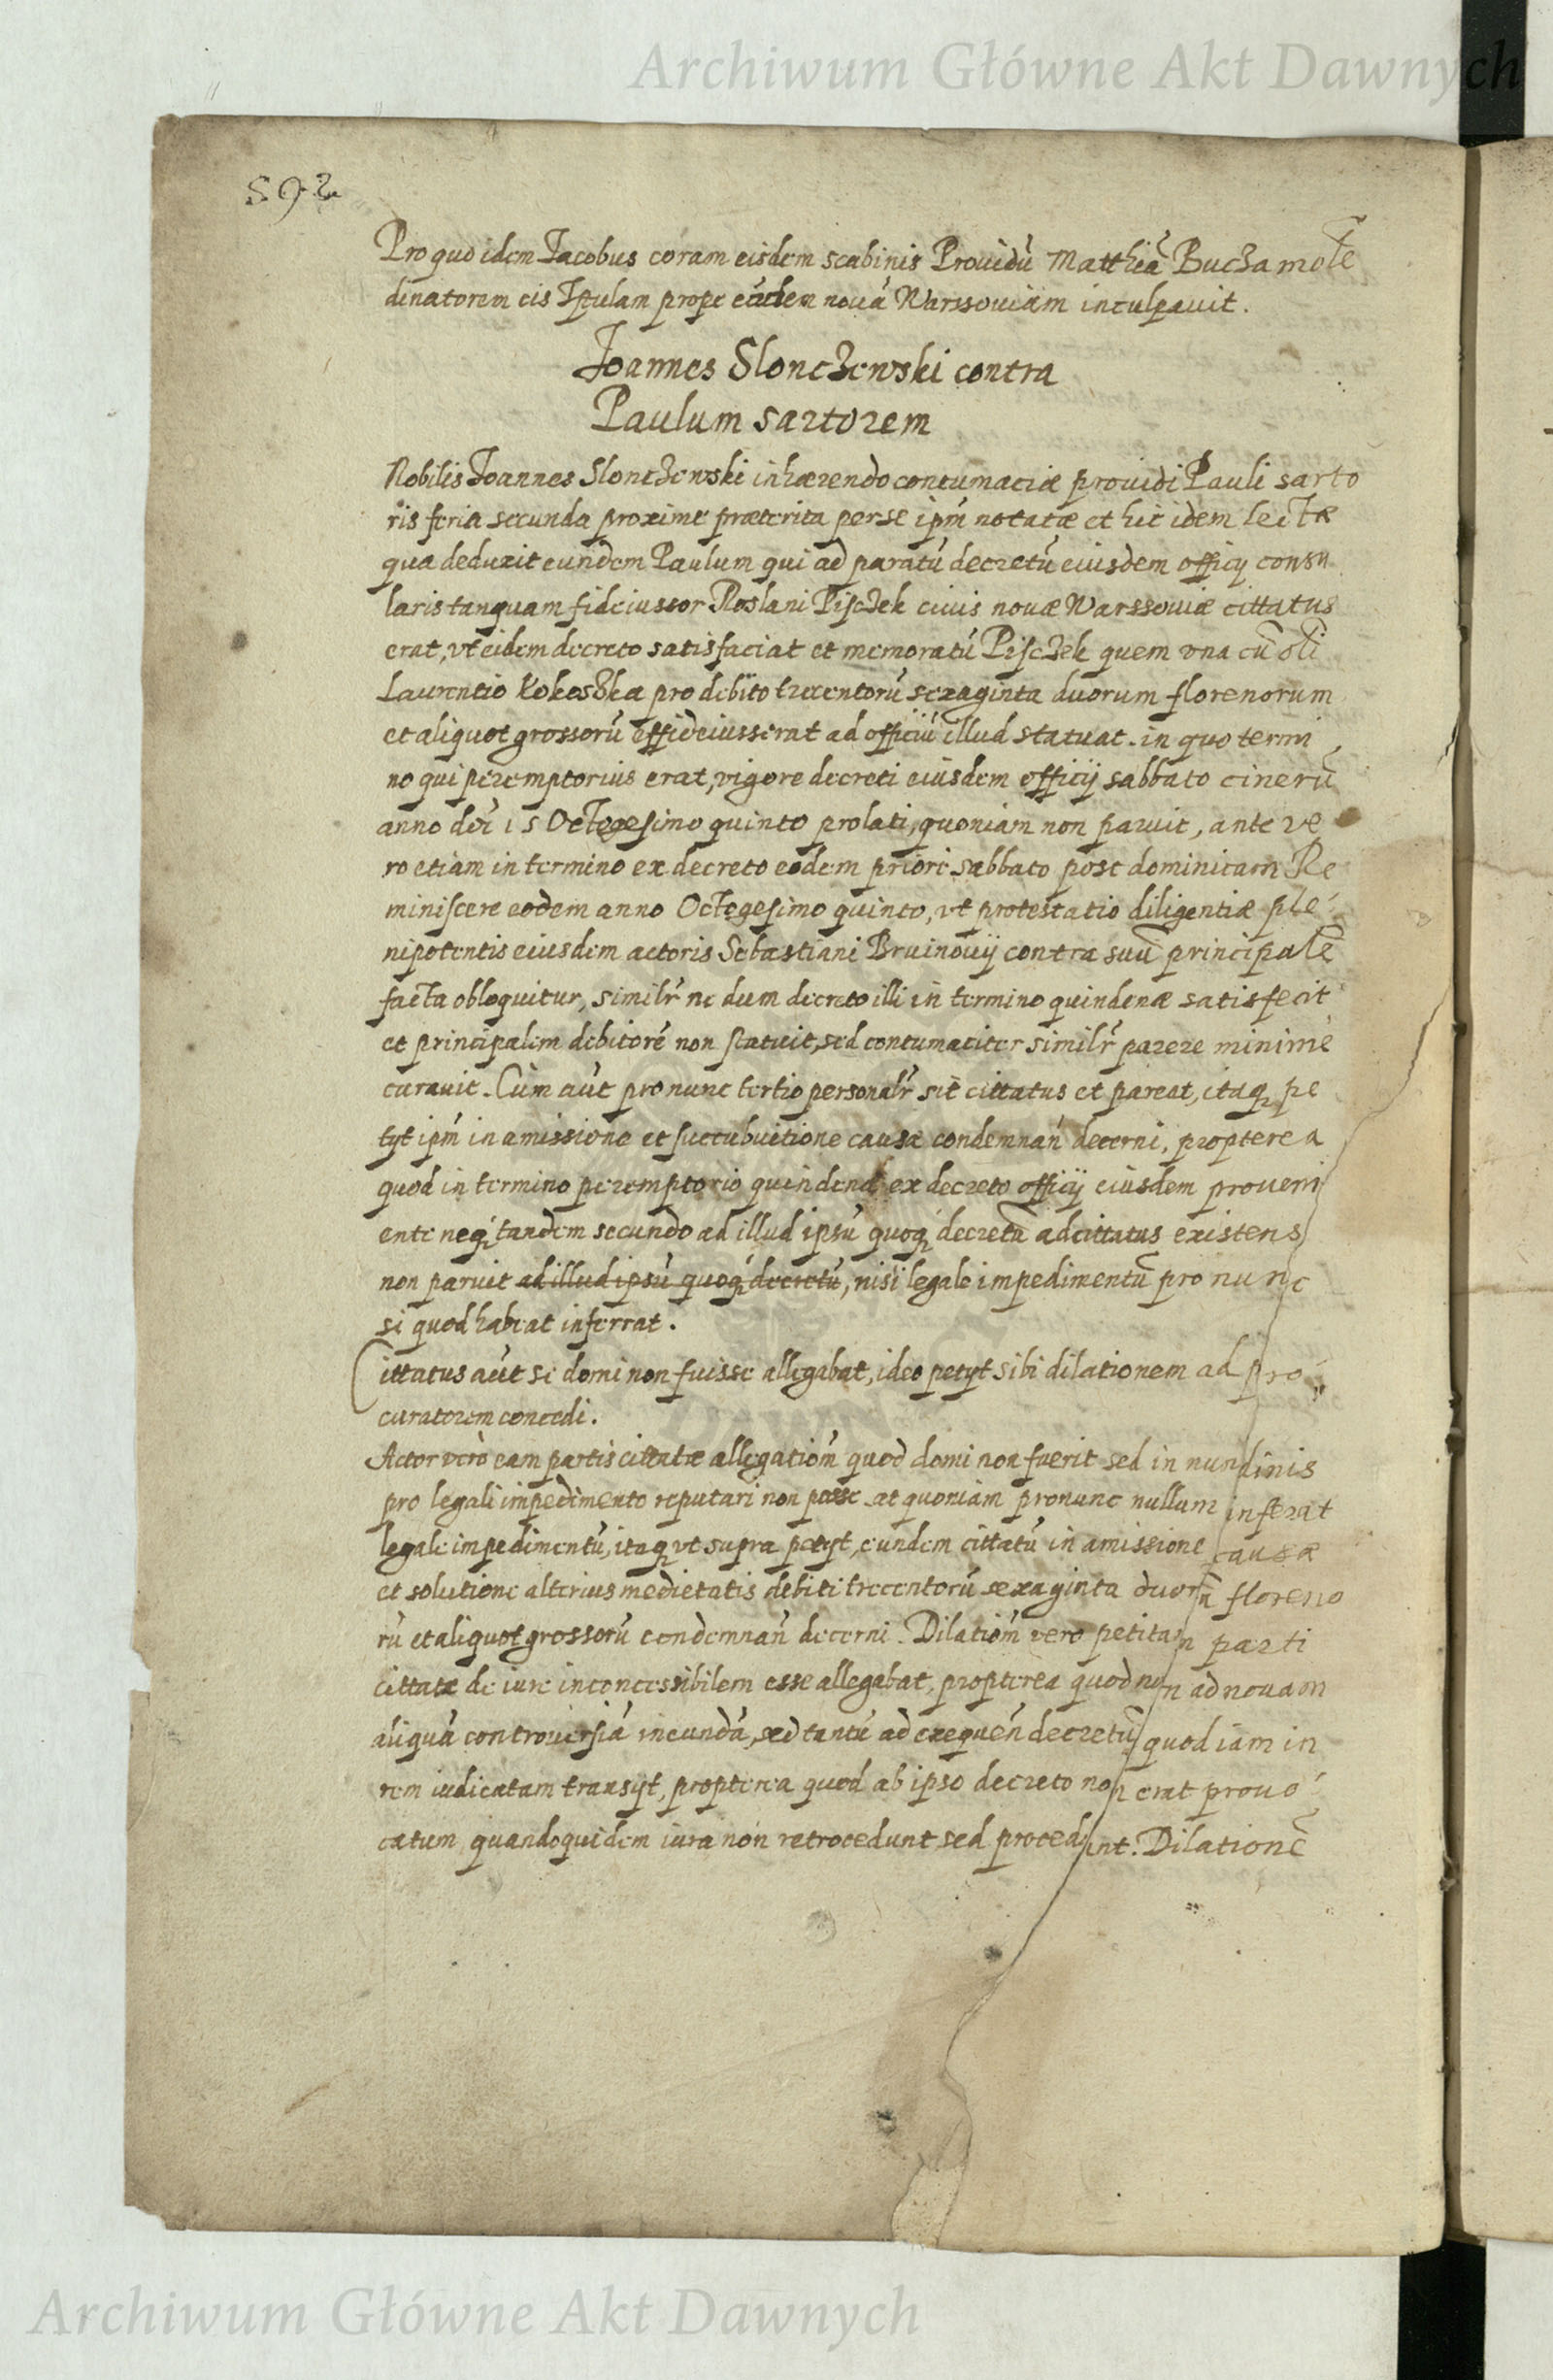 Archiwum Główne Akt Dawnych
592
Pro quo idem Jacobus coram eisdem scabinis Prouidū Matthiā Bucza molē
dinatorem cis Istulam prope eādem nouā Warssouiam inculpauit.
Joannes Slonczewski contra
Paulum sartorem
Nobilis Joannes Slonczewski inhærendo contumaciæ prouidi Pauli sarto
ris feria secunda proxime præterita per se ipm̄ notatæ et hic idem lectæ
qua deduxit eundem Paulum qui ad paratū decretū eiusdem officij consu
laris tanquam fideiussor Roslani Pisczek ciuis nouæ Warssouiæ cittatus
erat, vt eidem decreto satisfaciat et memoratū Pisczek quem vna cū oli
Laurentio Kokoszka pro debito trecentorū sexaginta duorum florenorum
et aliquot grossorū effideiusserat ad officiū illud statuat. in quo termi
no qui peremptorius erat, vigore decreti eiusdem officij sabbato cinerū
anno dni 15 Octogesimo quinto prolati, quoniam non paruit, ante ve
ro etiam in termino ex decreto eodem priori sabbato post dominicam Re
miniscere eodem anno Octogesimo quinto, vt protestatio diligentiæ ple
nipotentis eiusdem actoris Sebastiani Bruinouij contra suū principalē
facta obloquitur, similr̄ ne dum decreto illi in termino quindenæ satisfecit
et principalem debitorē non statuit, sed contumaciter similr̄ parere minime
curauit. Cùm aūt pro nunc tertio personalr̄ sit cittatus et pareat, itaq̨ pe
tyt ipm̄ in amissione et succubuitione causæ condemnan̄ decerni, propterea
quod in termino peremptorio quindenæ ex decreto officij eiusdem proueni
ente neq̨ tandem secundo ad illud ipsū quoq̨ decretū adcittatus existens
non paruit ad illud ipsū quoq̨ decretū, nisi legale impedimentū pro nunc
si quod habeat inferrat.
Cittatus aūt se domi non fuisse allegabat, ideo petyt sibi dilationem ad pro
curatorem concedi.
Actor verò eam partis cittatæ allegatiom̄ quod domi non fuerit sed in nundinis
pro legali impedimento reputari non posse at quoniam pronunc nullum inferat
legale impedimentū, itaq̨ vt supra petyt, eundem cittatū in amissione causæ
et solutione alterius medietatis debiti trecentorū sexaginta duorū floreno
rū et aliquot grossorū condemnan̄ decerni. Dilatiom̄ vero petitam parti
cittatæ de iure inconcessibilem esse allegabat, propterea quod non ad nouam
aliquā controuersiā ineundā, sed tantū ad exequen̄ decretū quod iam in
rem iudicatam transyt, propterea quod ab ipso decreto non erat prouo
catum quandoquidem iura non retrocedunt sed procedunt. Dilationē
Archiwum Główne Akt Dawnych